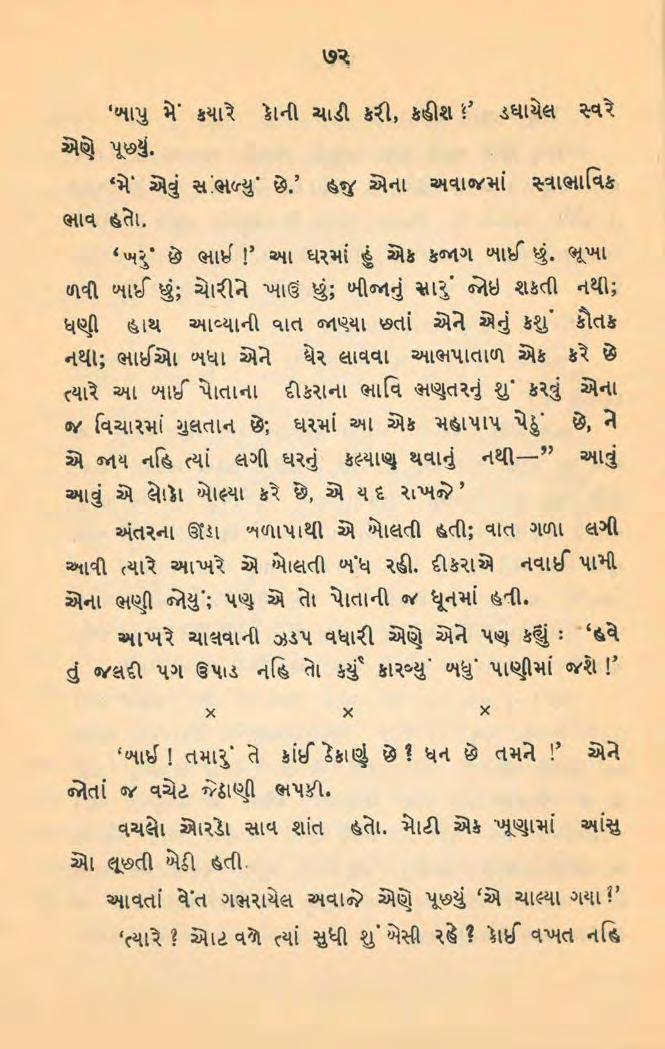 ૭૨
‘બાપુ મેં કયારે કોની ચાડી કરી, કહીશ ?’ ડઘાયેલ સ્વરે
એણે પૂછ્યું.
‘મેં એવું સાંભળ્યું છે.’ હજુ એના અવાજમાં સ્વાભાવિક
ભાવ હતો.
‘ખરું છે ભાઈ !’ આ ઘરમાં હું એક કજાગ બાઈ છું. ભૂખા
ળવી બાઈ છું; ચોરીને ખાઉં છું; બીજાનું સારું જોઇ શકતી નથી;
ધણી હાથ આવ્યાની વાત જાણ્યા છતાં એને એનું કશું કૌતક
નથી; ભાઈઓ બધા એને ઘેર લાવવા આભપાતાળ એક કરે છે
ત્યારે આ બાઈ પોતાના દીકરાના ભાવિ ભણતરનું શું કરવું એના
જ વિચારમાં ગુલતાન છે; ઘરમાં આ એક મહાપાપ પેઠું છે, ને
એ જાય નહિ ત્યાં લગી ઘરનું કલ્યાણ થવાનું નથી—” આવું
આવું એ લોકો બોલ્યા કરે છે, એ યાદ રાખજે’
અંતરના ઊંડા બળાપાથી એ બોલતી હતી; વાત ગળા લગી
આવી ત્યારે આખરે એ બોલતી બંધ રહી. દીકરાએ નવાઈ પામી
એના ભણી જોયું; પણ એ તો પોતાની જ ધૂનમાં હતી.
આખરે ચાલવાની ઝડપ વધારી એણે એને પણ કહ્યું : ‘હવે
તું જલદી પગ ઉપાડ નહિ તો કર્યું કારવ્યું બધું પાણીમાં જશે !’
× × ×
‘બાઈ ! તમારું તે કાંઈ ઠેકાણું છે ? ધન છે તમને !’ એને
જોતાં જ વચેટ જેઠાણી ભપકી.
વચલો ઓરડો સાવ શાંત હતો. મોટી એક ખૂણામાં આંસુ
ઓ લૂછતી બેઠી હતી.
આવતાં વેંત ગભરાયેલ અવાજે એણે પૂછ્યું ‘એ ચાલ્યા ગયા ?’
‘ત્યારે ? ઓટ વળે ત્યાં સુધી શું બેસી રહે ? કોઈ વખત નહિ